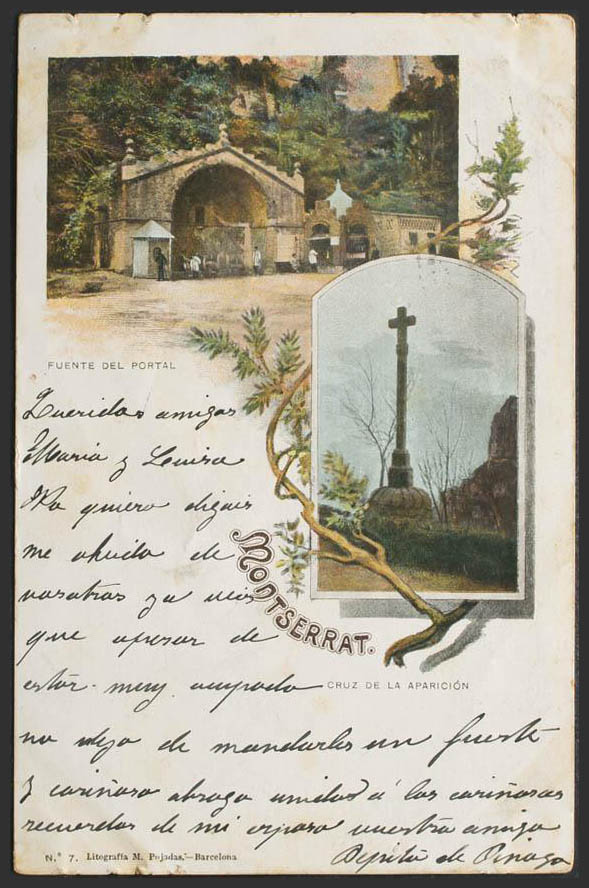 FUENTE DEL PORTAL
Queridas amigas
Maria y Luisa
No quiero digais
me olvido de
vosotras ya veis
que apesar de
estar muy ocupada
no dejo de mandarles un fuerte
y cariñoso abrazo unidos á los cariñosos
recuerdos de mi esposo vuestra amiga
Pepita de
MONTSERRAT.
CRUZ DE LA APARICIÓN
N.º 7. Litografía M. Pujadas,—Barcelona